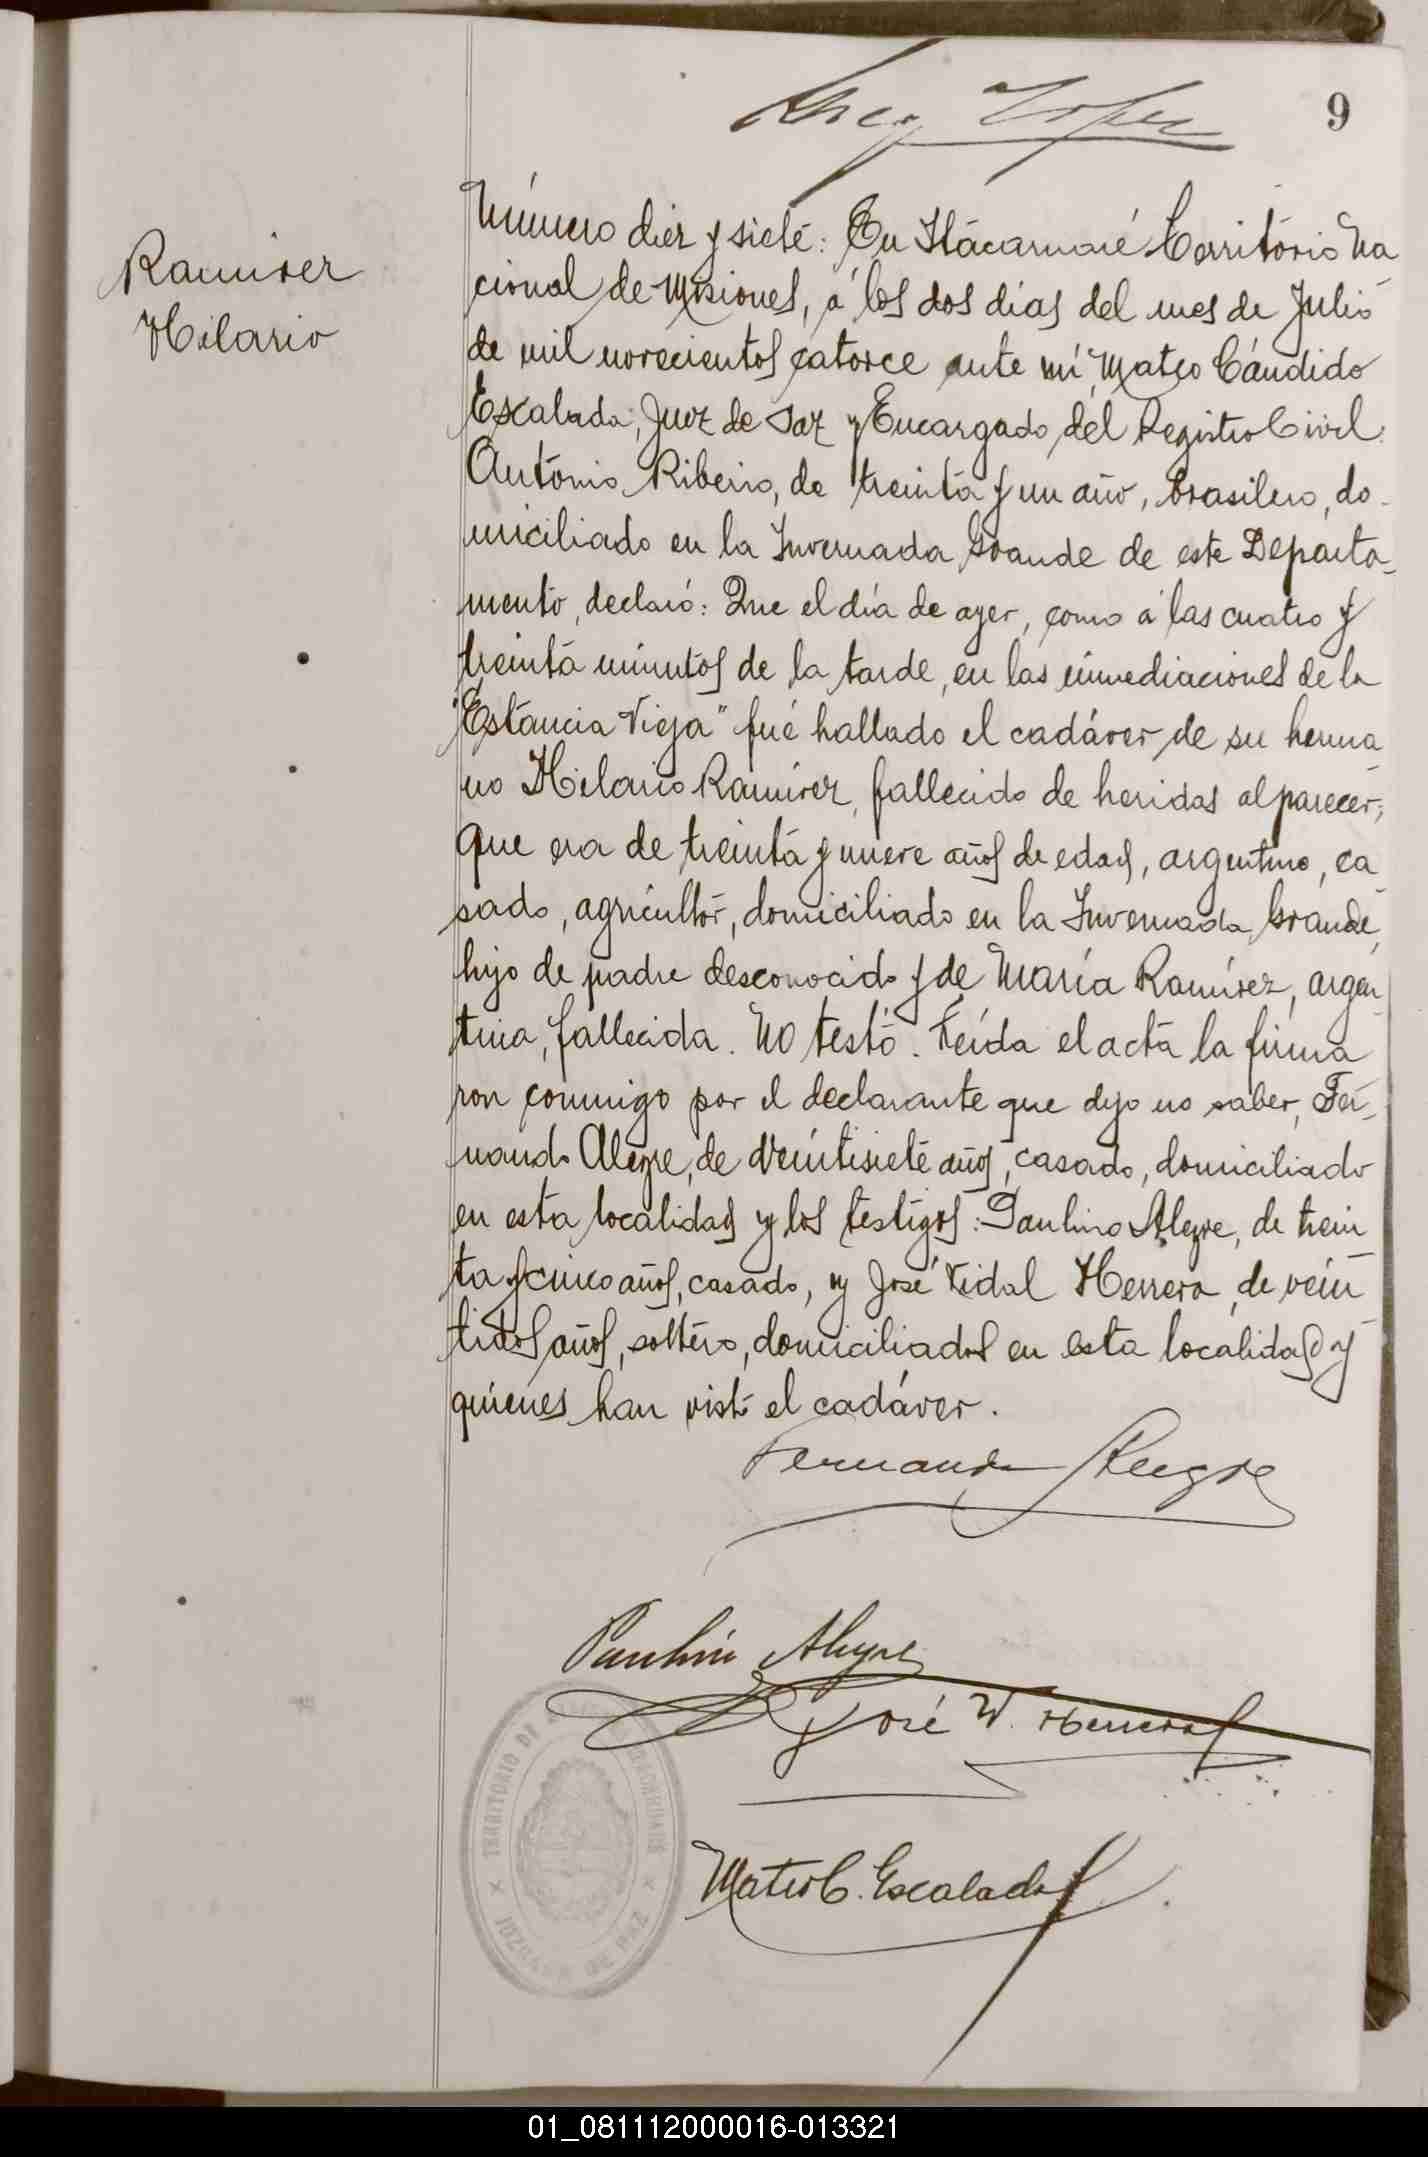 9
Ramirez
Hilario
Número diez y siete: En Itacaruaré Territorio Na
cional de Misiones, á los dos días del mes de Julio
de mil novecientos catorce ante mí, Mateo Cándido
Escalada, Juez de Paz y Encargado del Registro Civil:
Antonio Ribeiro, de treinta y un año, brasilero, do-
miciliado en la Invernada Grande de este Departa-
mento, declaró: Que el día de ayer, como á las cuatro y
treinta minutos de la tarde, en las inmediaciones de la
"Estancia Vieja" fué hallado el cadáver de su herma
no Hilario Ramírez, fallecido de heridas al parecer;
que era de treinta y nueve años de edad, argentino, ca
sado, agricultor, domiciliado en la Invernada Grande,
hijo de padre desconocido y de María Ramírez, argen
tina, fallecida. No testó. Leída el acta la firma
ron conmigo por el declarante que dijo no saber, Fer-
nando Alegre, de veintisiete años, casado, domiciliado
en esta localidad y los testigos: Paulino Alegre, de trein
ta y cinco años, casado, y José Vidal Herrera, de vein
tidos años, soltero, domiciliados en esta localidad y
quienes han visto el cadáver.
Fernando Alegre
Paulino Alegre
José V. Herrera
Mateo C. Escalada
TERRITORIO DE
JUZGADO DE PAZ
01_081112000016-013321